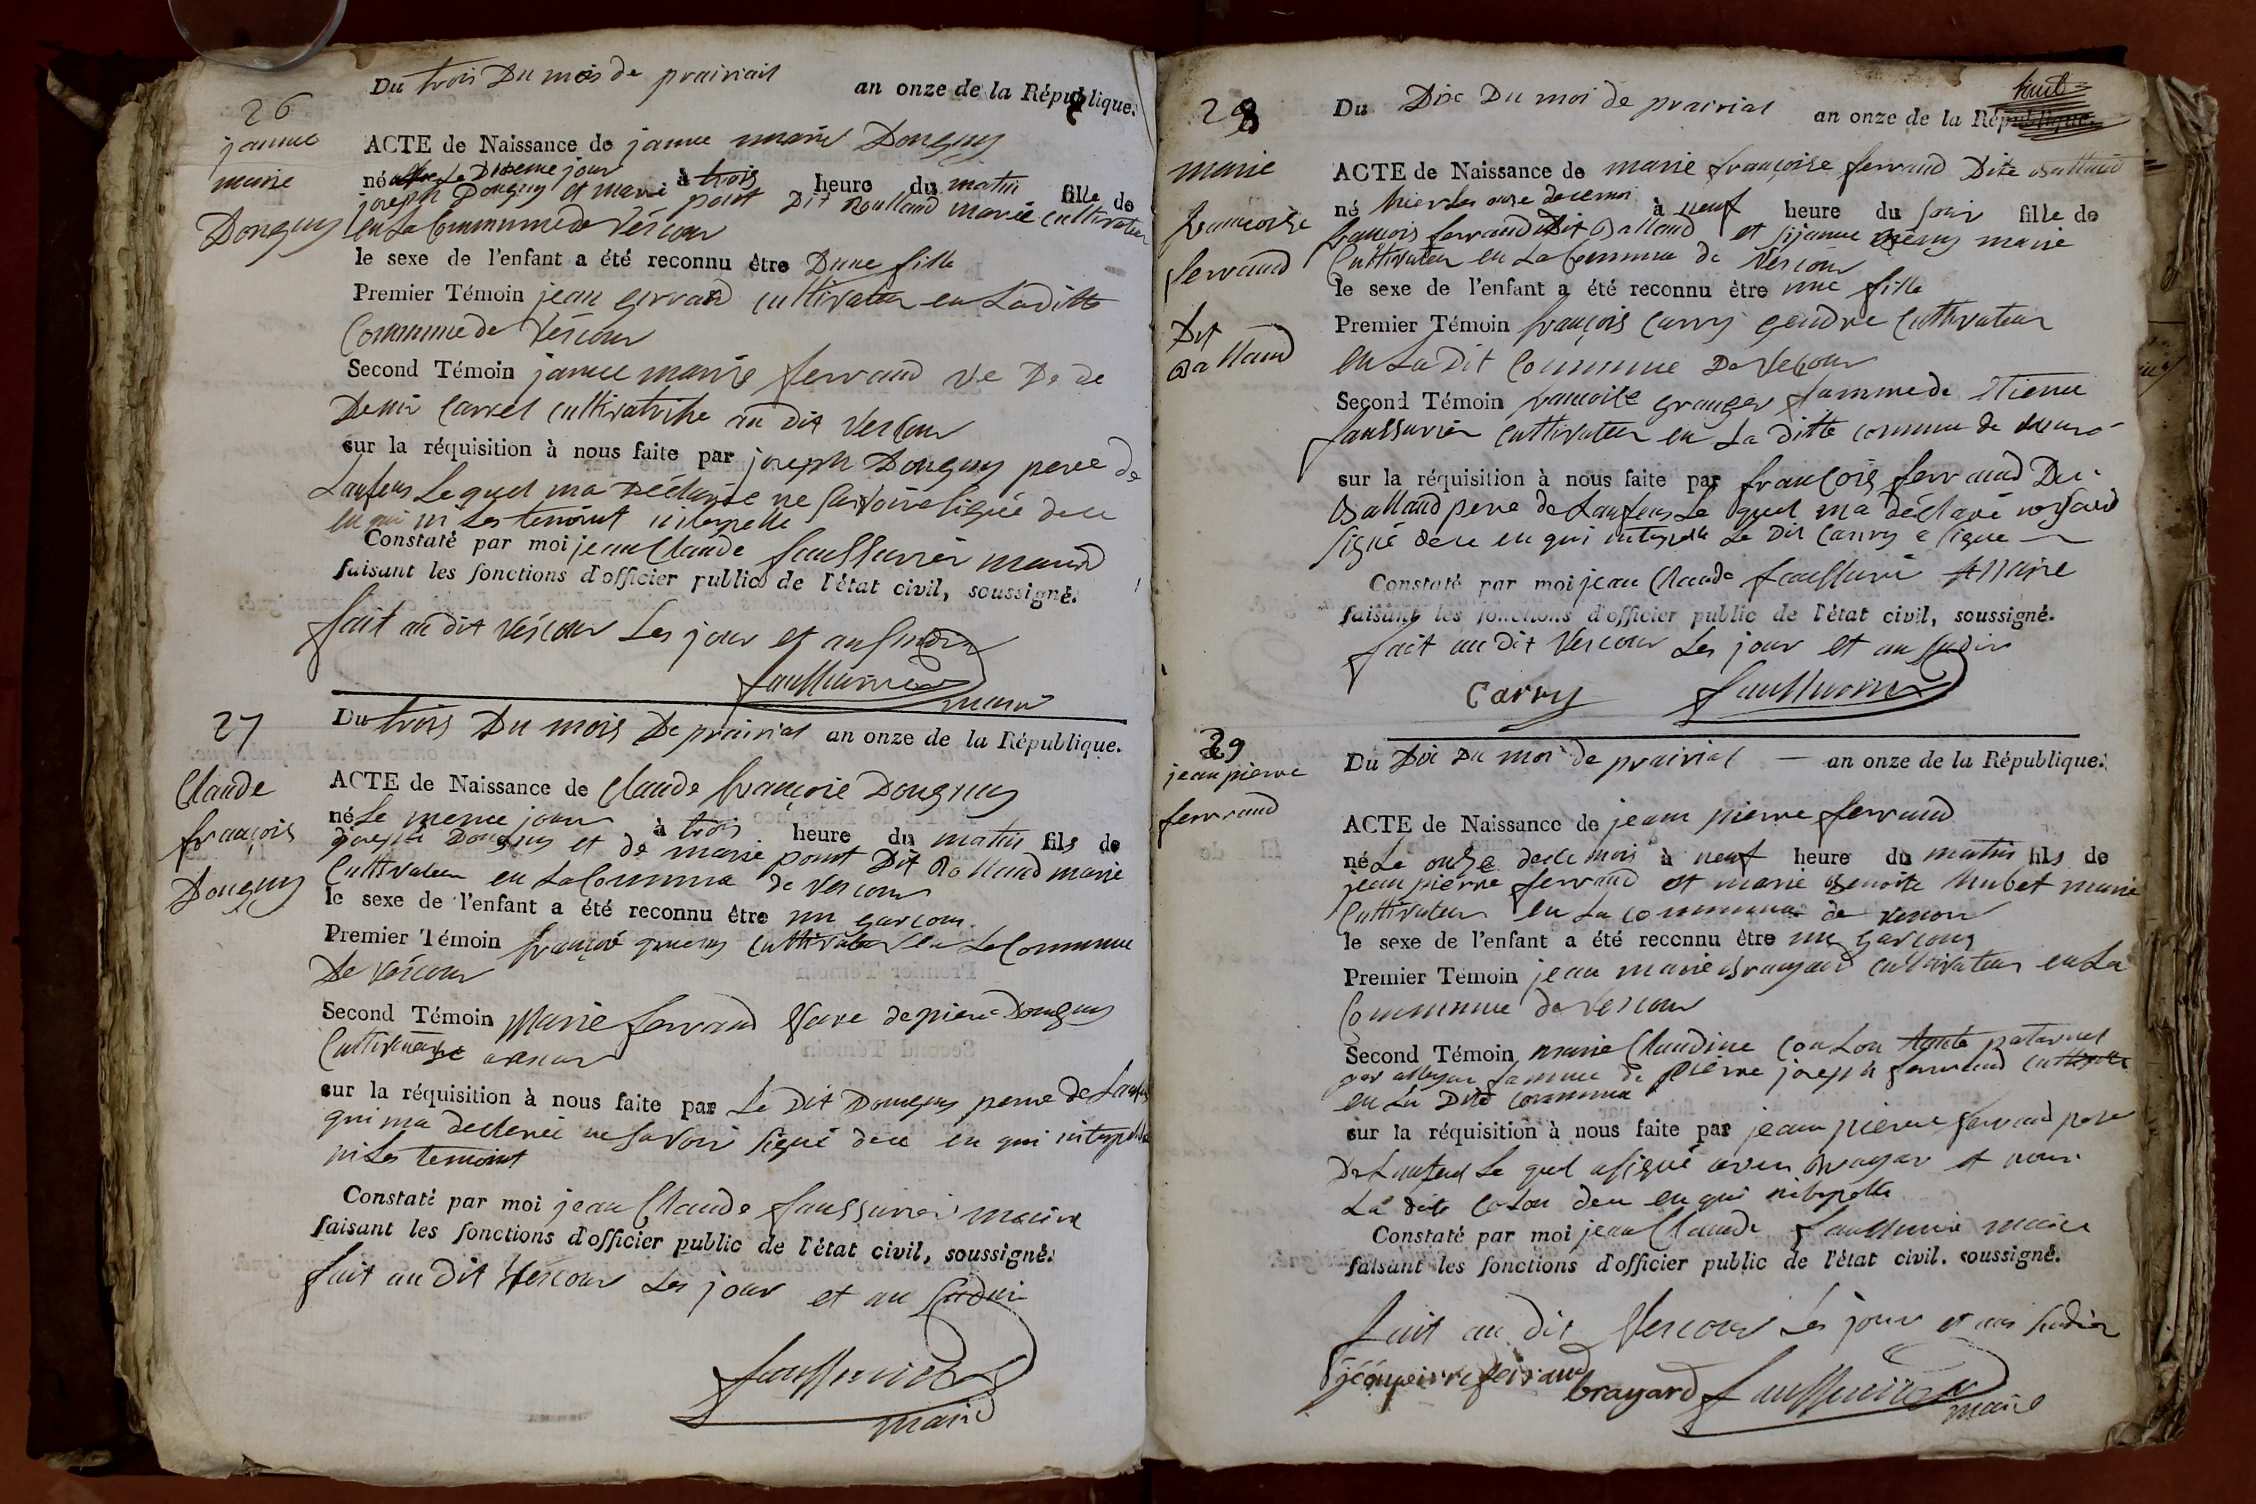 26
jeanne
marie
Donguy
Du trois Du mois de prairiail an onze de la République.
ACTE de Naissance de jeanne marie Donguy
né jour à trois heure du matin fille de
joseph Donguy et marie pont Dit Rolland marié cultivateur
en La Commune de Vescour
le sexe de l'enfant a été reconnu être Dune fille
Premier Témoin jean cultivateur en Laditte
Commune de Vescour
Second Témoin janne marie ferrand ve De de
Denis Carrel au dit Vescour
sur la réquisition à nous faite par joseph Donguy pere de
Lanfens Lequel ma Déclarée ne savoire signé dece
en qui ni Les temoint interpelle
Constaté par moi jean Claude faussurier maire
faisant les fonctions d'officier public de l'état civil, soussigné.
fait au dit Vescour Les jour et an susdit
faussurier
maire
27
Claude
françois
Donguy
Du trois Du mois De prairial an onze de la République.
ACTE de Naissance de Claude françoie Donguy
né Le meme jour à trois heure du matin fils de
joseph Donguy et de marie pont Dit Rolland marié
Cultivateur en La Commune de Vescour
le sexe de l'enfant a été reconnu être un garcon
Premier Témoin cultivateur en La Commune
De Vescour
Second Témoin Marie ferrand de piere Donguy
sur la réquisition à nous faite par Le Dit Donguy pere de Lanfens
qui ma declaree ne savoir signé dece en qui interpelle
ni Les temoint
Constaté par moi jean Claude faussurier maire
faisant les fonctions d'officier public de l'état civil, soussigné.
fait au dit Vescour Les jour et an susdit
faussurier
maire
28
marie
francoise
ferrand
Dit
Balland
Du Dix Du moi de prairial an onze de la République.
huit
ACTE de Naissance de marie françoise ferrand Dite Balland
né hier Les onze de ce moi à neuf heure du soir fille de
françois ferrand Dit Balland et marié
Cultivateur en La Commune de Vescour
le sexe de l'enfant a été reconnu être une fille
Premier Témoin françois Carry gendre Cultivateur
en La Dit Commune De Vescour
Second Témoin francoise granger famme de Etienne
faussurier cultivateur en La ditte commune de
sur la réquisition à nous faite par françois ferrand Dit
Balland pere de Lanfens Le quel ma déclaré
signé dece en qui interpelle Le Dit Carry a signe
Constaté par moi jean Claude faussurier Maire
faisant les fonctions d'officier public de l'état civil, soussigné.
fait au Dit Vescour Les jour et an susdit
Carry faussurier
29
jean pierre
ferrand
Du Dix Du moi de prairial an onze de la République.
ACTE de Naissance de jean pierre ferrand
né Le onze de ce mois à neuf heure du matin fils de
jean pierre ferrand et marie Benoite hubet marié
Cultivateur en La commune de Vescour
le sexe de l'enfant a été reconnu être un garcong
Premier Témoin jean marie Brayard cultivateur en La
Commune de Vescour
Second Témoin marie Claudine Conton paternel
famme de pierre joseph ferrand
en La Dite commune
sur la réquisition à nous faite par jean pierre ferrand pere
De Lanfent Le quel a signé avec Brayar et non
La dite dece en qui interpelle
Constaté par moi jean Claude faussurier maire
faisant les fonctions d'officier public de l'état civil, soussigné.
fait au Dit Vescour Les jour et an susdit
jean peirre ferrand brayard faussurier
maire